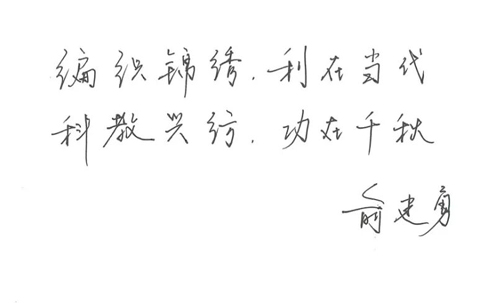 编织锦绣.利在当代
科教兴纺.功在千秋
俞建勇